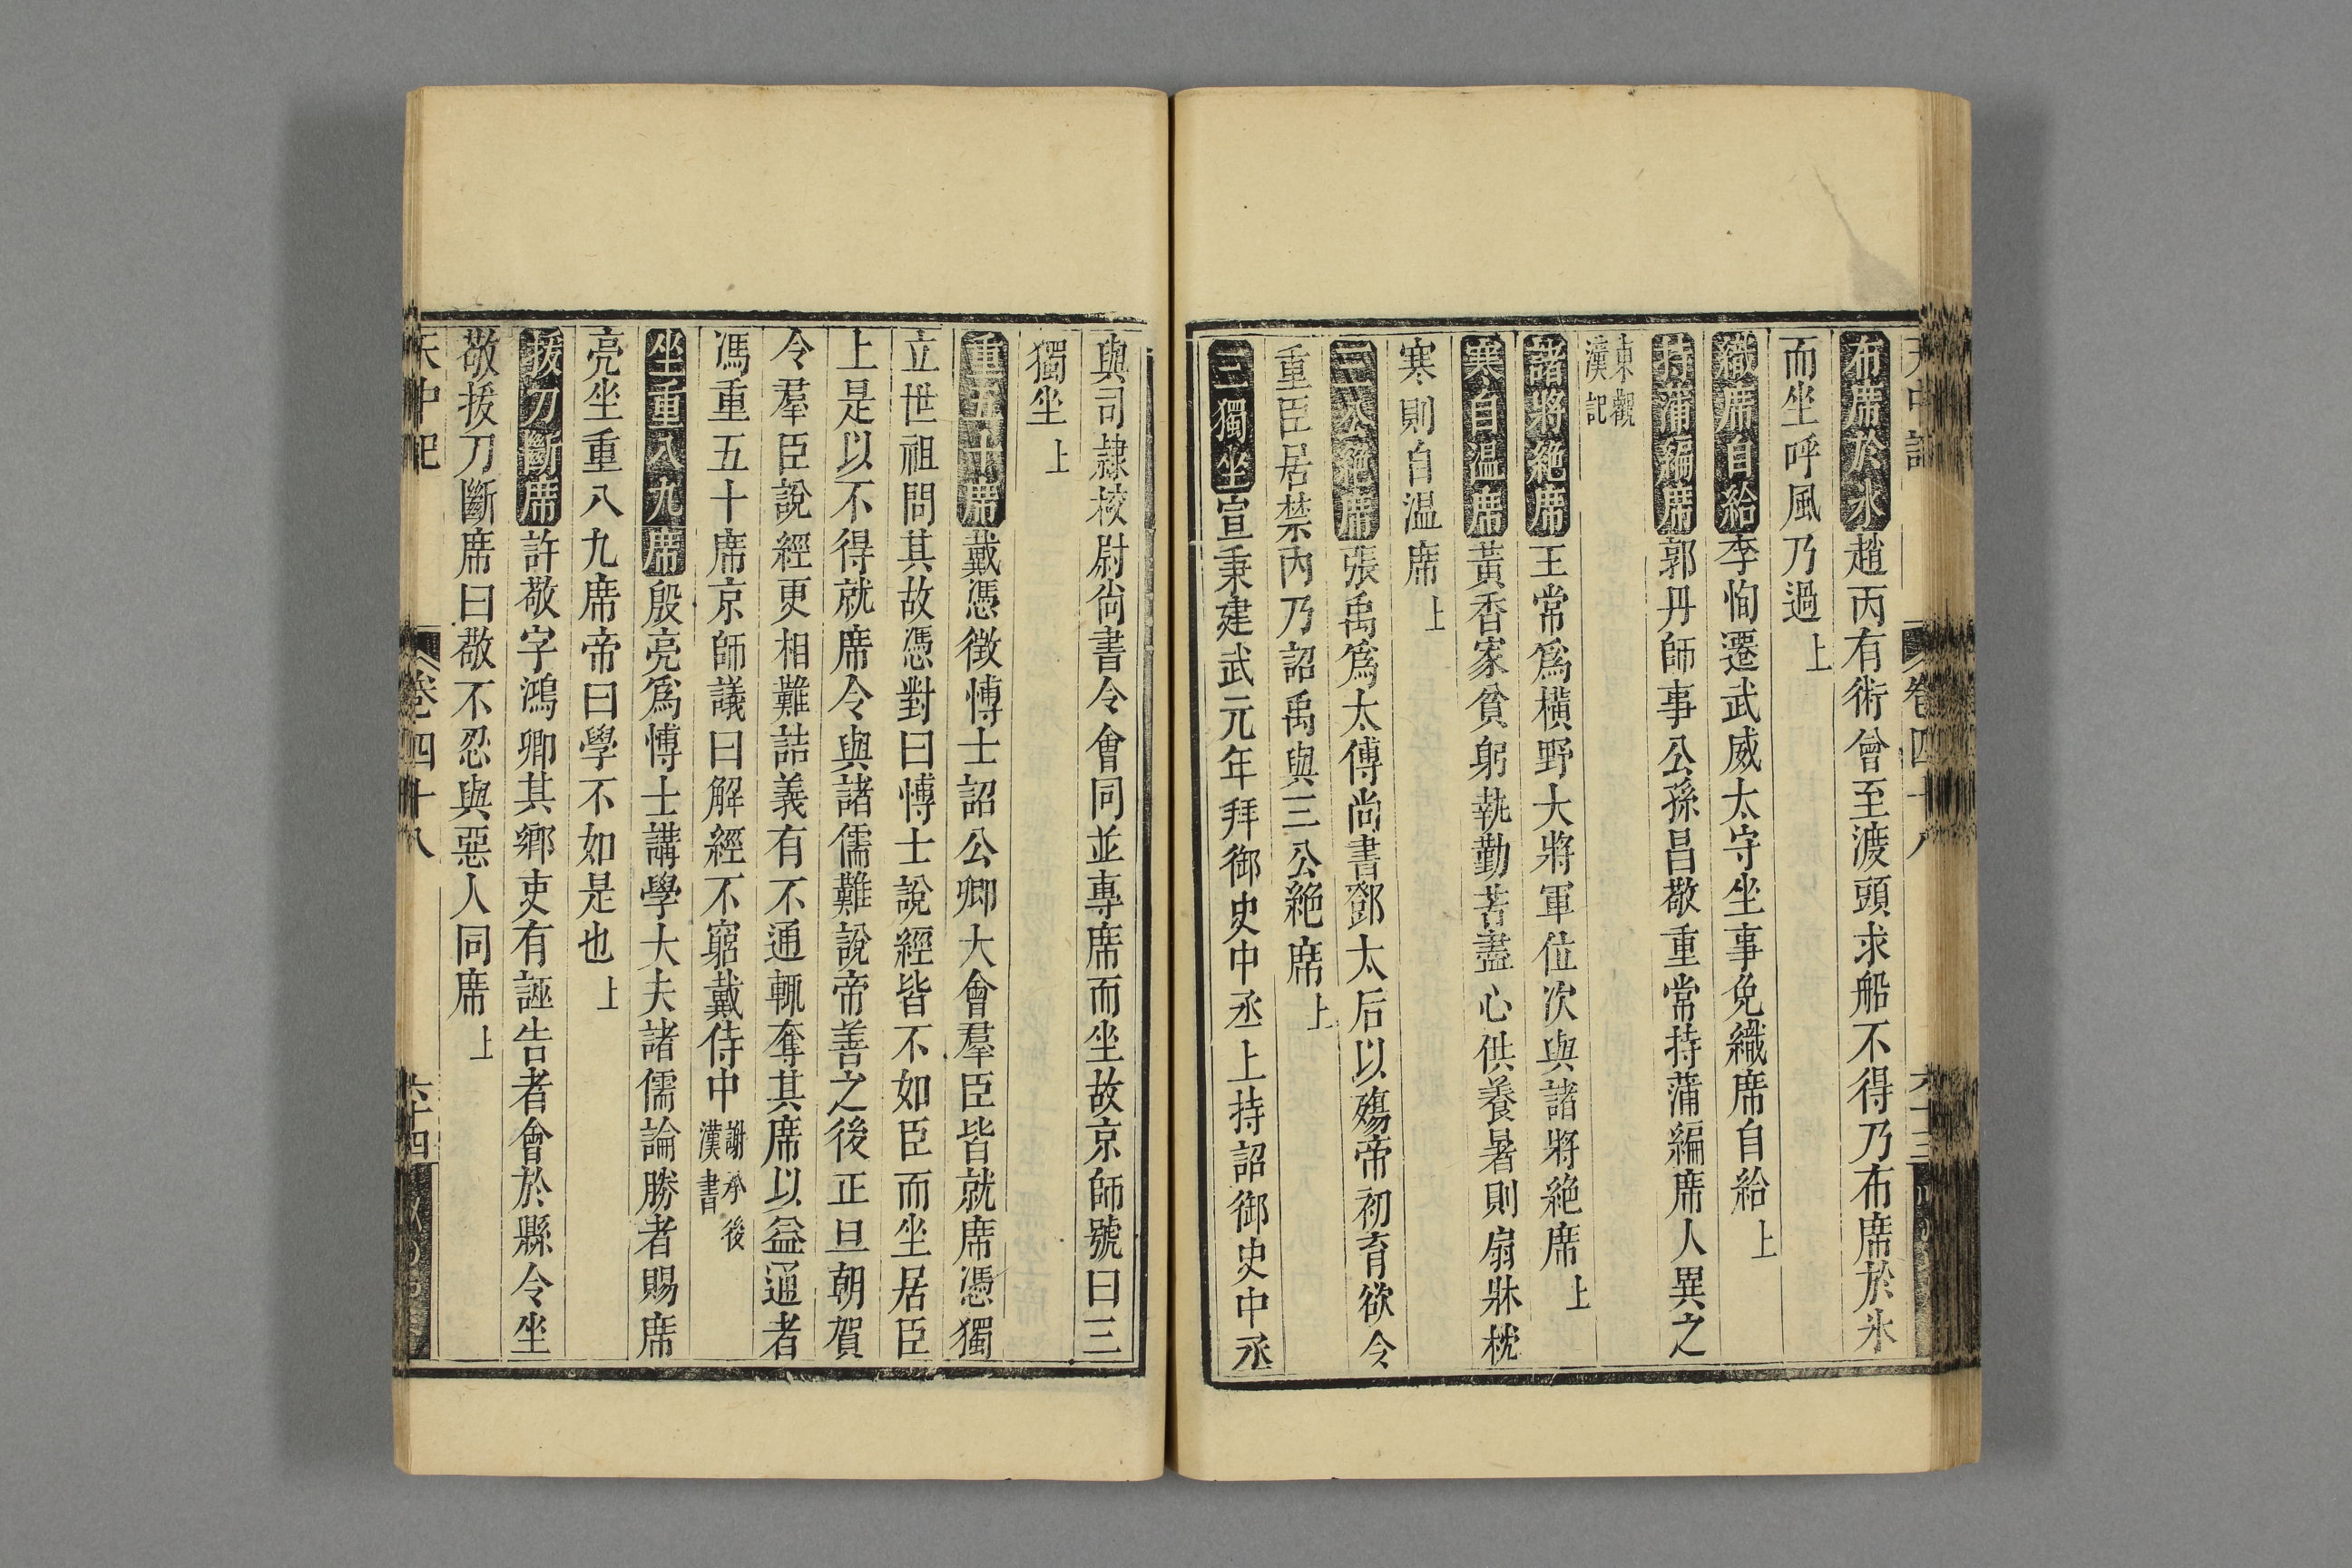 天中記 卷四十八 六十三
布席於水趙丙有術曾至渡頭求船不得乃布席於水
而坐呼風乃過上
織席自給李恂遷武威太守坐事免織席自給上
持蒲編席郭丹師事公孫昌敬重常持蒲編席人異之
東觀漢記
諸將絶席王常爲橫野大將軍位次與諸將絶席上
寒自温席黃香家貧躬執勤苦盡心供養暑則扇牀枕
寒則自温席上
三公絶席張禹爲太傅尚書鄧太后以殤帝初育欲令
重臣居禁内乃詔禹與三公絶席上
三獨坐宣秉建武元年拜御史中丞上持詔御史中丞
與司隷校尉尚書令會同並專席而坐故京師號曰三
獨坐上
重五十席戴憑徵博士詔公卿大會羣臣皆就席憑獨
立世祖問其故憑對曰博士說經皆不如臣而坐居臣
上是以不得就席令與諸儒難說帝善之後正旦朝賀
令羣臣說經更相難詰義有不通輒奪其席以益通者
馮重五十席京師議曰解經不窮戴侍中謝承後漢書
坐重八九席殷亮爲博士講學大夫諸儒論勝者賜席
亮坐重八九席帝曰學不如是也上
拔刀斷席許敬字鴻卿其鄉吏有誣告者會於縣令坐
敬拔刀斷席曰敬不忍與惡人同席上
天中記 卷四十八 六十四